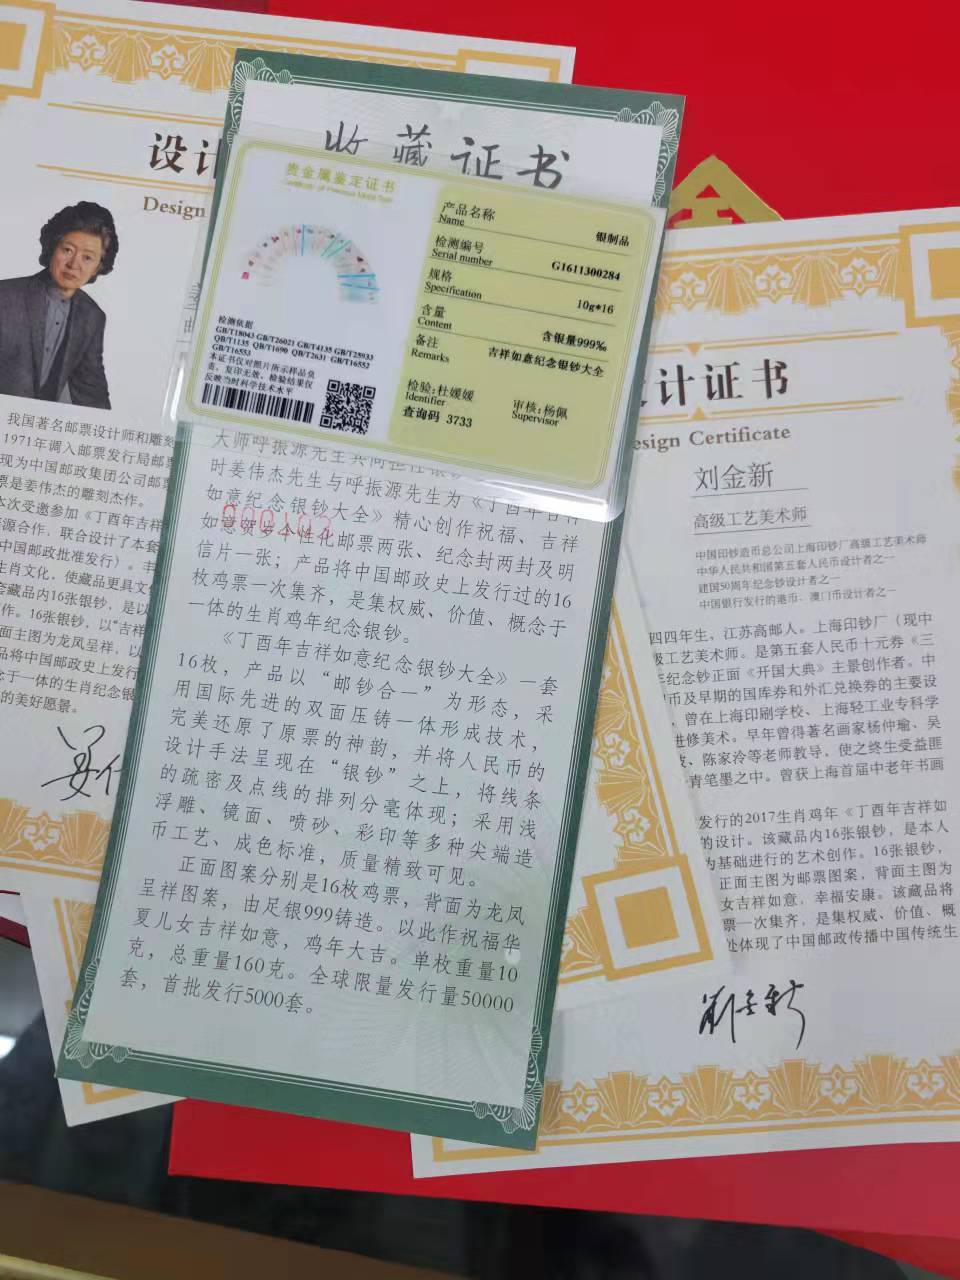 设计
Design
我国著名邮票设计师和雕刻
1971年调入邮票发行局邮票
现为中国邮政集团公司邮票
票是姜伟杰的雕刻杰作。
本次受邀参加《丁酉年吉祥
源合作，联合设计了本套
中国邮政批准发行）。丰
生肖文化，使藏品更具文化
套藏品内16张银钞，是以
作。16张银钞，以“吉祥
面主图为龙凤呈祥，以
品将中国邮政史上发行
念于一体的生肖纪念银
的美好愿景。
收藏证书
贵金属鉴定证书
Certificate of Precious Metal Test
检测依据
GB/T18043 GB/T26021 GB/T4135 GB/T25933
QB/T1135 QB/T1690 QB/T2631 GB/T16552
GB/T16553
本证书仅对照片所示样品负
责，复印无效，检验结果仅
反映当时科学技术水平
产品名称
Name
银制品
检测编号
Serial number
G1611300284
规格
Specification
10g*16
含量
Content
含银量999‰
备注
Remarks
吉祥如意纪念银钞大全
检验:杜媛媛
Identifier
审核:杨佩
Supervisor
查询码 3733
大师呼振源先生共同担任银
时姜伟杰先生与呼振源先生为《丁酉年吉祥
如意纪念银钞大全》精心创作祝福、吉祥
如意贺岁个性化邮票两张、纪念封两封及明
信片一张；产品将中国邮政史上发行过的16
枚鸡票一次集齐，是集权威、价值、概念于
一体的生肖鸡年纪念银钞。
《丁酉年吉祥如意纪念银钞大全》一套
16枚，产品以“邮钞合一”为形态，采
用国际先进的双面压铸一体形成技术，
完美还原了原票的神韵，并将人民币的
设计手法呈现在“银钞”之上，将线条
的疏密及点线的排列分毫体现；采用浅
浮雕、镜面、喷砂、彩印等多种尖端造
币工艺、成色标准，质量精致可见。
正面图案分别是16枚鸡票，背面为龙凤
呈祥图案，由足银999铸造。以此作祝福华
夏儿女吉祥如意，鸡年大吉。单枚重量10
克，总重量160克。全球限量发行量50000
套，首批发行5000套。
计证书
esign Certificate
刘金新
高级工艺美术师
中国印钞造币总公司上海印钞厂高级工艺美术师
中华人民共和国第五套人民币设计者之一
建国50周年纪念钞设计者之一
中国银行发行的港币、澳门币设计者之一
四四年生，江苏高邮人。上海印钞厂（现中
级工艺美术师。是第五套人民币十元券《三
年纪念钞正面《开国大典》主景创作者。中
币及早期的国库券和外汇兑换券的主要设
，曾在上海印刷学校、上海轻工业专科学
进修美术。早年曾得著名画家杨仲瑜、吴
、陈家泠等老师教导，使之终生受益匪
青笔墨之中。曾获上海首届中老年书画
发行的2017生肖鸡年《丁酉年吉祥如
的设计。该藏品内16张银钞，是本人
为基础进行的艺术创作。16张银钞，
正面主图为邮票图案，背面主图为
女吉祥如意，幸福安康。该藏品将
票一次集齐，是集权威、价值、概
处体现了中国邮政传播中国传统生
刘金新